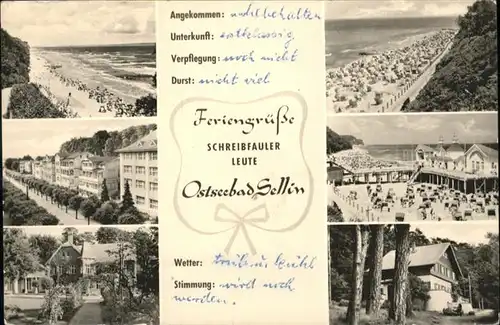 Angekommen: wohlbehalten
Unterkunft: erstklassig
Verpflegung: noch nicht
Durst: nicht viel
Feriengrüße
SCHREIBFAULER
LEUTE
Ostseebad Sellin
Wetter: trüb u. kühl
Stimmung: wird noch
werden.